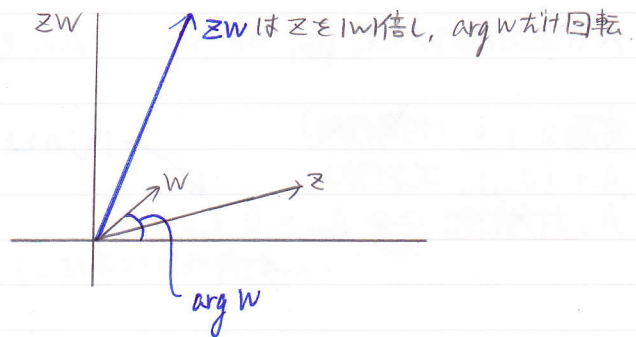 zw
zwはzを|w|倍し, arg wだけ回転.
w
z
arg w